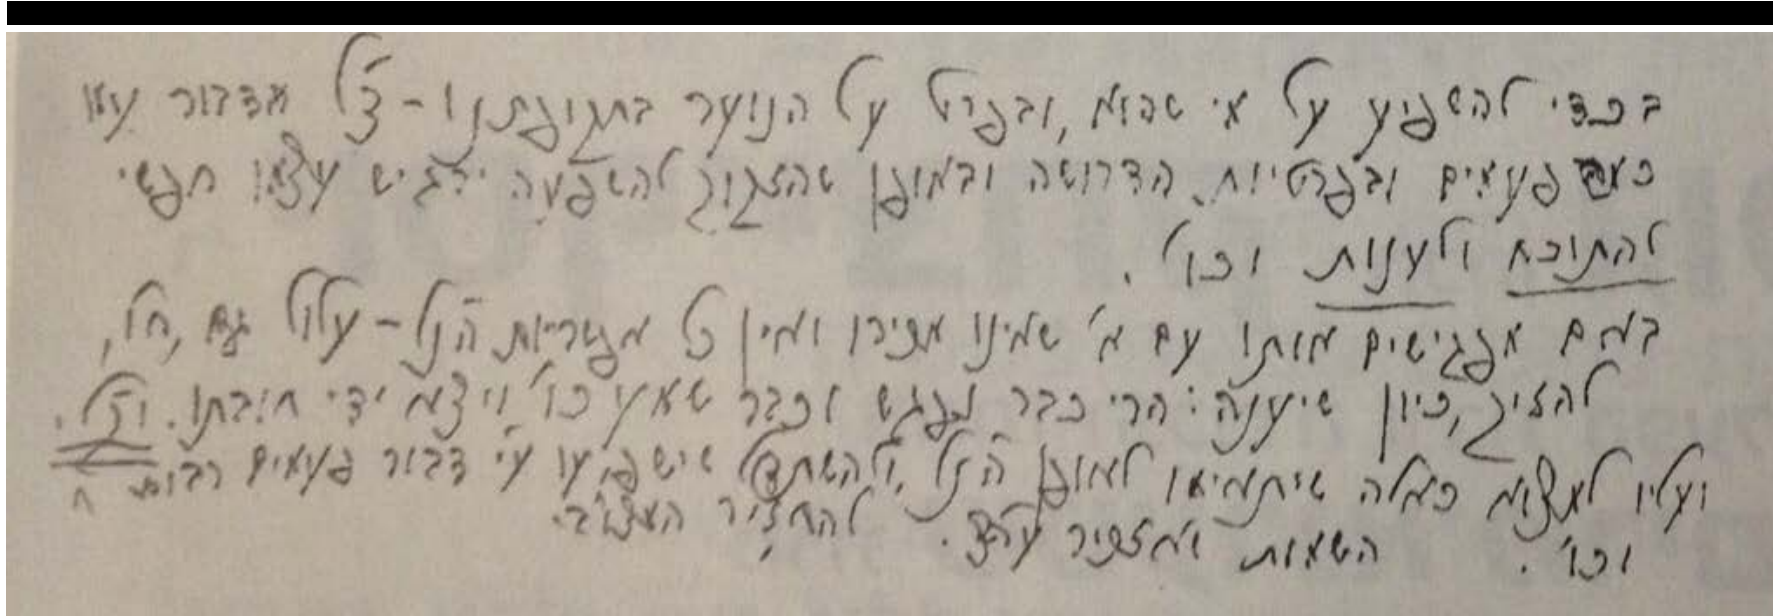 בכדי להשפיע על מי שהוא, ובפרט על הנוער בתקופתנו – צ"ל הדבור עמו
כמה פעמים ובפרטיות הדרושה ובאופן שהזקוק להשפעה ירגיש עצמו חפשי
להתוכח ולענות וכו'.
באם מפגישים אותו עם א' שאינו מכירו ואין כל אפשריות הנ"ל – עלול גם, ח"ו,
להזיק, כיון שיענה: הרי כבר נפגש וכבר שמע כו' ויצא ידי חובתו. וצ"ל.
ועליו למצוא כאלה שיתאימו לאופן הנ"ל, ולהשתדל שישפיעו ע"י דבור פעמים רבות
וכו'. השמות אזכיר עה"צ. להחזיר המצו"ב.